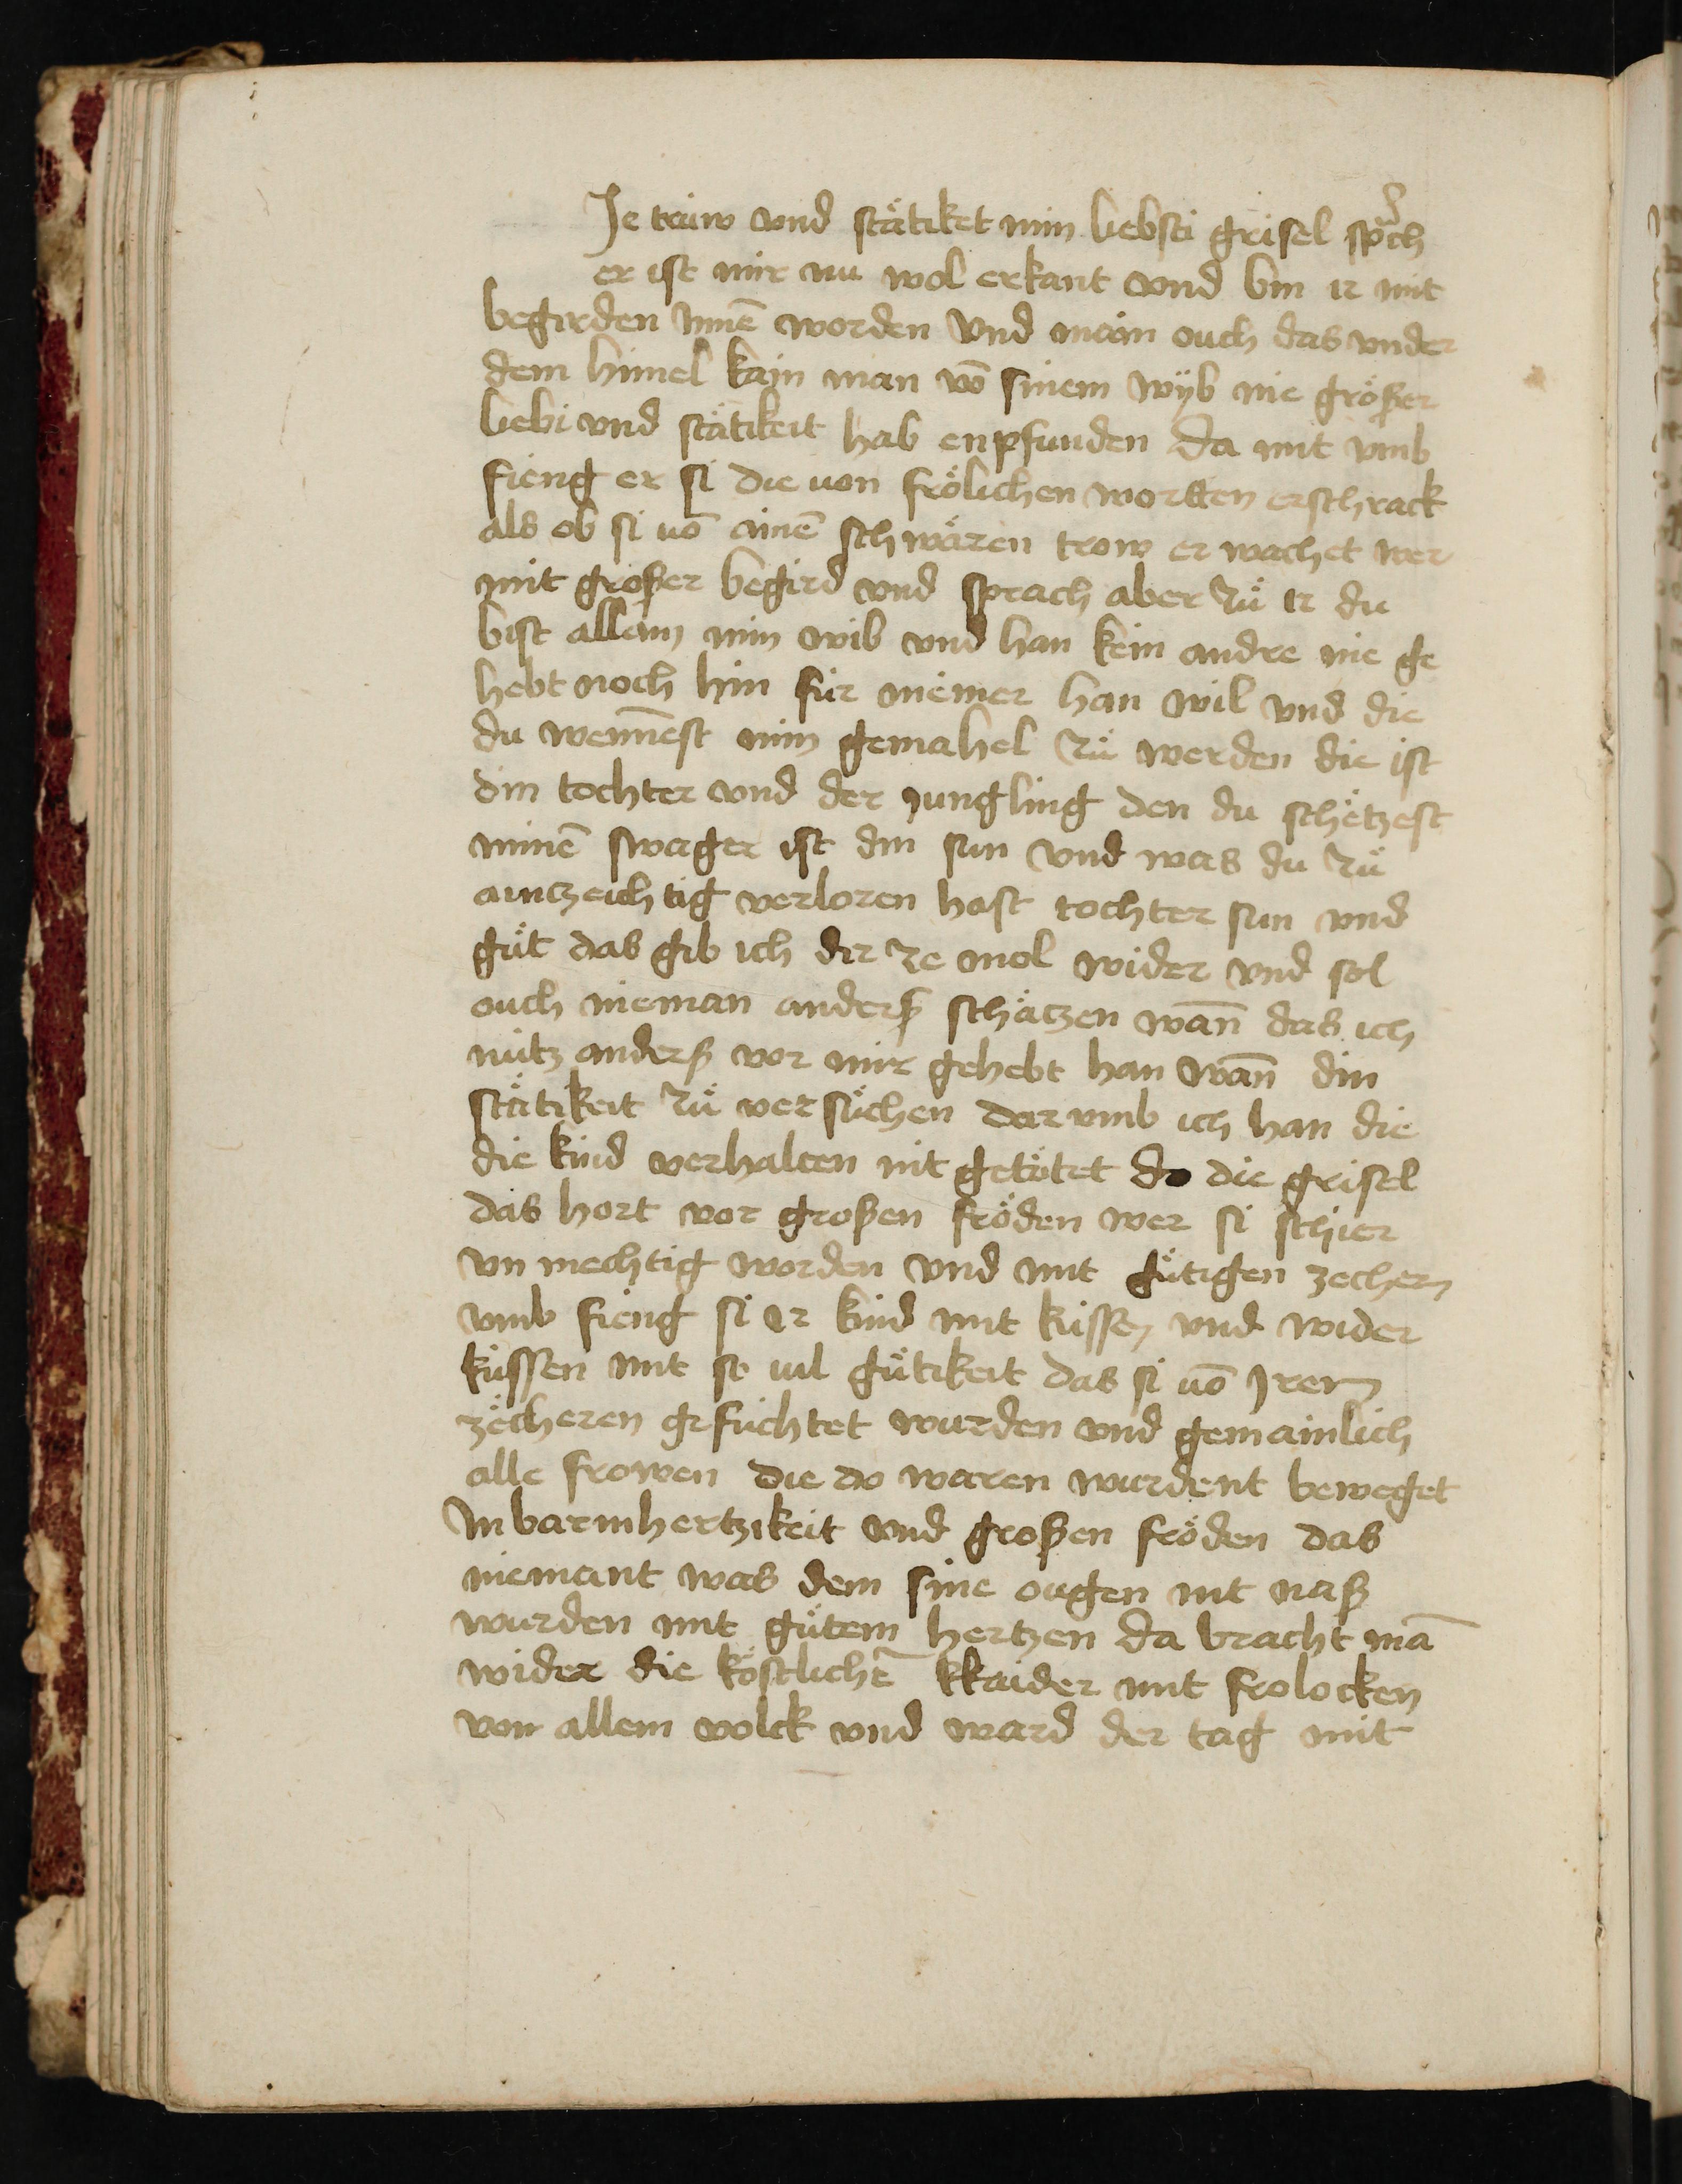 Je träw vnd stätiket min liebsti grisel sprch
er ist mir nu wol erkant vnd bin ir mit
begirden Innē worden Vnd main ouch das vnder
dem himel kain man vō sinem wyb nie größer
liebi vnd stätikeit hab enpfunden Da mit vmb
fieng er si die von frölichen wortten erschrack
als ob si vō ainē schwären trow er wachet wer
mit großer begird vnd sprach aber zü ir du
bist allain min wib vnd han kein andre nie ge
hebt noch hin für niemer han wil vnd die
du wennest min gemahel zü werden die ist
din tochter vnd der jungling den du schëtzest
minē swager ist din sun vnd was du zü
aintzeichtig verloren hast tochter sun vnd
güt das gib ich dir ze mol wider vnd sol
ouch nieman anderß schätzen wann das ich
nütz anderß vor mir gehebt han wann din
stätikeit zü versüchen dar vmb ich han die
die kind verhalten nit getötet do die grisel
das hort vor großen fröden wer si schier
vn mechtig worden vnd mit gütigen zechern
vmb fieng si ir kind mit küssen vnd wider
küssen mit so vil gütikeit das si vō jren
zëcheren gefüchtet wurden vnd gemainlich
alle frowen die do waren wurdent beweget
In barmhertzikeit vnd großen fröden das
niemant was dem sine ougen nit naß
wurden mit gütem hertzen da bracht mā
wider die köstlichē klaider mit frolocken
von allem volck vnd ward der tag mit